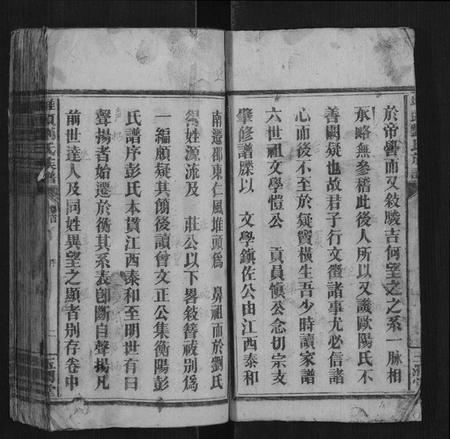 於帝嚳而又敍駿吉何望之之系一脈相
承略無參稽此後人所以又譏歐陽氏不
善闕疑也故君子行文徵諸事尤必信諸
心而後不至於疑竇橫生吾少時讀家譜
六世祖文學愷公 貢員愼公念切宗支
肇修譜牒以 文學鎭佐公由江西泰和
南遷邵東仁風堆頭爲 鼻祖而於劉氏
得姓源流及 莊公以下畧敘簪祓別爲
一編顧疑其
後讀曾文正公集衡陽彭
氏譜序彭氏本貫江西泰和至明世有曰
聲揚者始遷於衡其系表卽斷自聲揚凡
前世達人及同姓異望之顯者別存卷中